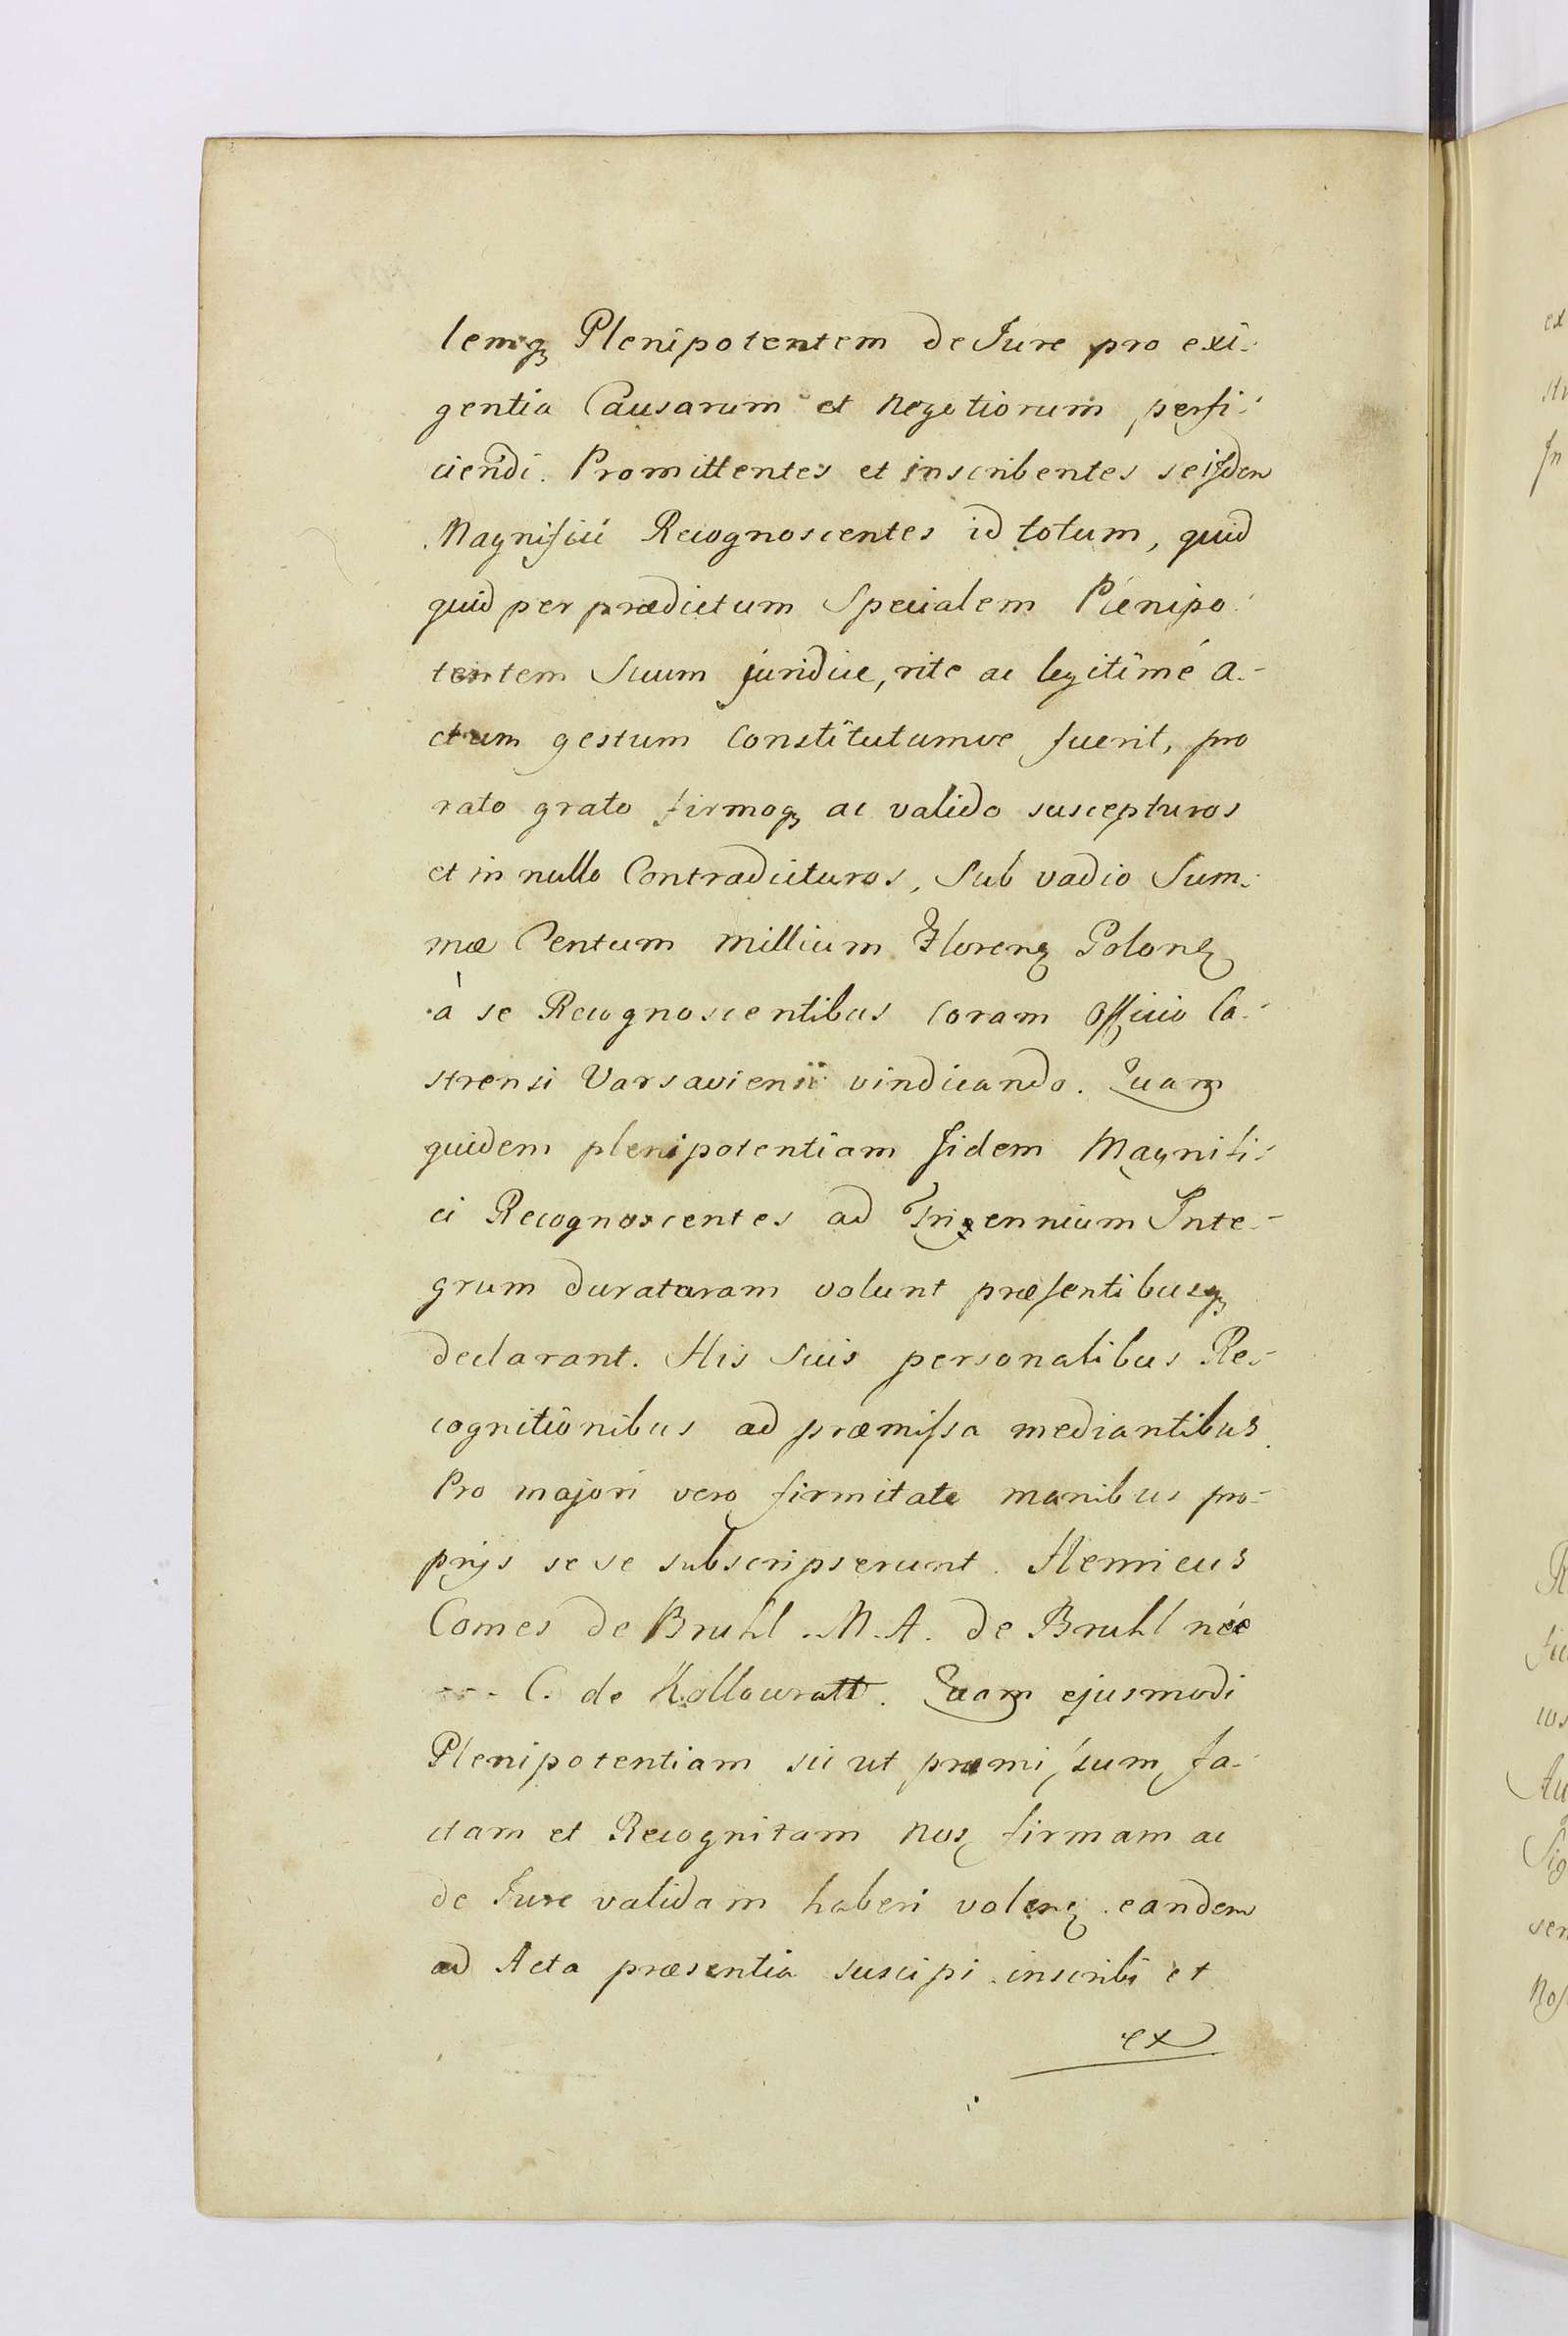 lemqꝫ Plenipotentem de Jure pro exi-
gentia Causarum et Negotiorum perfi-
ciendi. Promittentes et inscribentes se ijdem
Magnifici Recognoscentes id totum, quid
quid per prædictum Specialem Plenipo-
tentem Suum juridice, rite ac legitimé a-
ctum gestum Constitutumve fuerit, pro
rato grato firmoqꝫ ac valido suscepturos
et in nullo Contradicturos, Sub vadio Sum-
mæ Centum millium Florenꝫ Polonꝫ
à se Recognoscentibus coram Officio Ca-
strensi Varsaviensi vindicando. Quam
quidem plenipotentiam Jidem Magnifi-
ci Recognoscentes ad Triennium Inte-
grum duraturam volunt præsentibusqꝫ
declarant. His Suis personalibus Re-
cognitionibus ad præmissa mediantibus.
Pro majori vero firmitate manibus pro-
prijs se se subscripserunt. Henricus
Comes de Bruhl. M. A. de Bruhl née
C. de Kollowratt. Quam ejusmodi
Plenipotentiam sic ut præmissum, fa-
ctam et Recognitam Nos firmam ac
de Jure validam haberi volenꝫ eandem
ad Acta præsentia suscipi inscribi et
ex